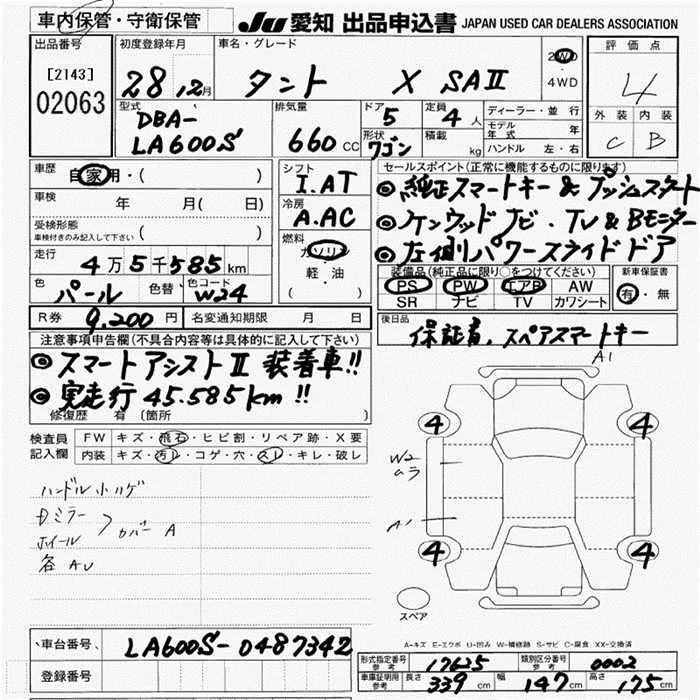 車内保管・守衛保管
JU 愛知 出品申込書 JAPAN USED CAR DEALERS ASSOCIATION
出品番号 初度登録年月 車名・グレード 評価点
[2143]
02063
28 12月 タント X SAⅡ 2WD ・ 4WD 4
型式 排気量 ドア 定員 ディーラー・並行 外装 内装
DBA-
LA600S 660 CC 5 4人 モデル年式 年 C B
形状 ワゴン 積載 kg ハンドル 左・右
車歴 自家用・( ) シフト セールスポイント(正常に機能するものに限ります)
I.AT ◎純正スマートキー & プッシュスタート
車検 年 月( 日) 冷房
A.AC ◎ケンウッドナビ.TV&Bモニター
受検形態
車検付きのみ記入して下さい ( ) 燃料 ガソリン ◎左側パワースライドドア
走行 4万5千585km 軽・油 装備品(純正品に限り○をつけてください) 新車保証書
色 パール 色替 色コード W24 ( ) PS PW エアB AW 有・無
SR ナビ TV カワシート
R券 9,200円 名変通知期限 月 日 後日品
保証書、スペアスマートキー
注意事項申告欄(不具合内容等は具体的に記入して下さい)
◎スマートアシストⅡ 装着車!!
◎実走行45.585km!!
修復歴 有 (箇所 )
検査員記入欄 FW キズ・飛石・ヒビ割・リペア跡・X要
内装 キズ・汚レ・コゲ・穴・スレ・キレ・破レ
A1
4 4
W2
ムラ
A1
4 4
スペア
ハンドル小ハゲ
Dミラー
ホイール カバー A
各 AU
A-キズ E-エクボ U-凹み W-補修跡 S-サビ C-腐食 XX-交換済
車台番号 LA600S-0487342
登録番号
形式指定番号 参考 17625 類別区分番号 参考 0002
車庫証明用 参考 長さ 339cm 幅 147cm 高さ 175cm